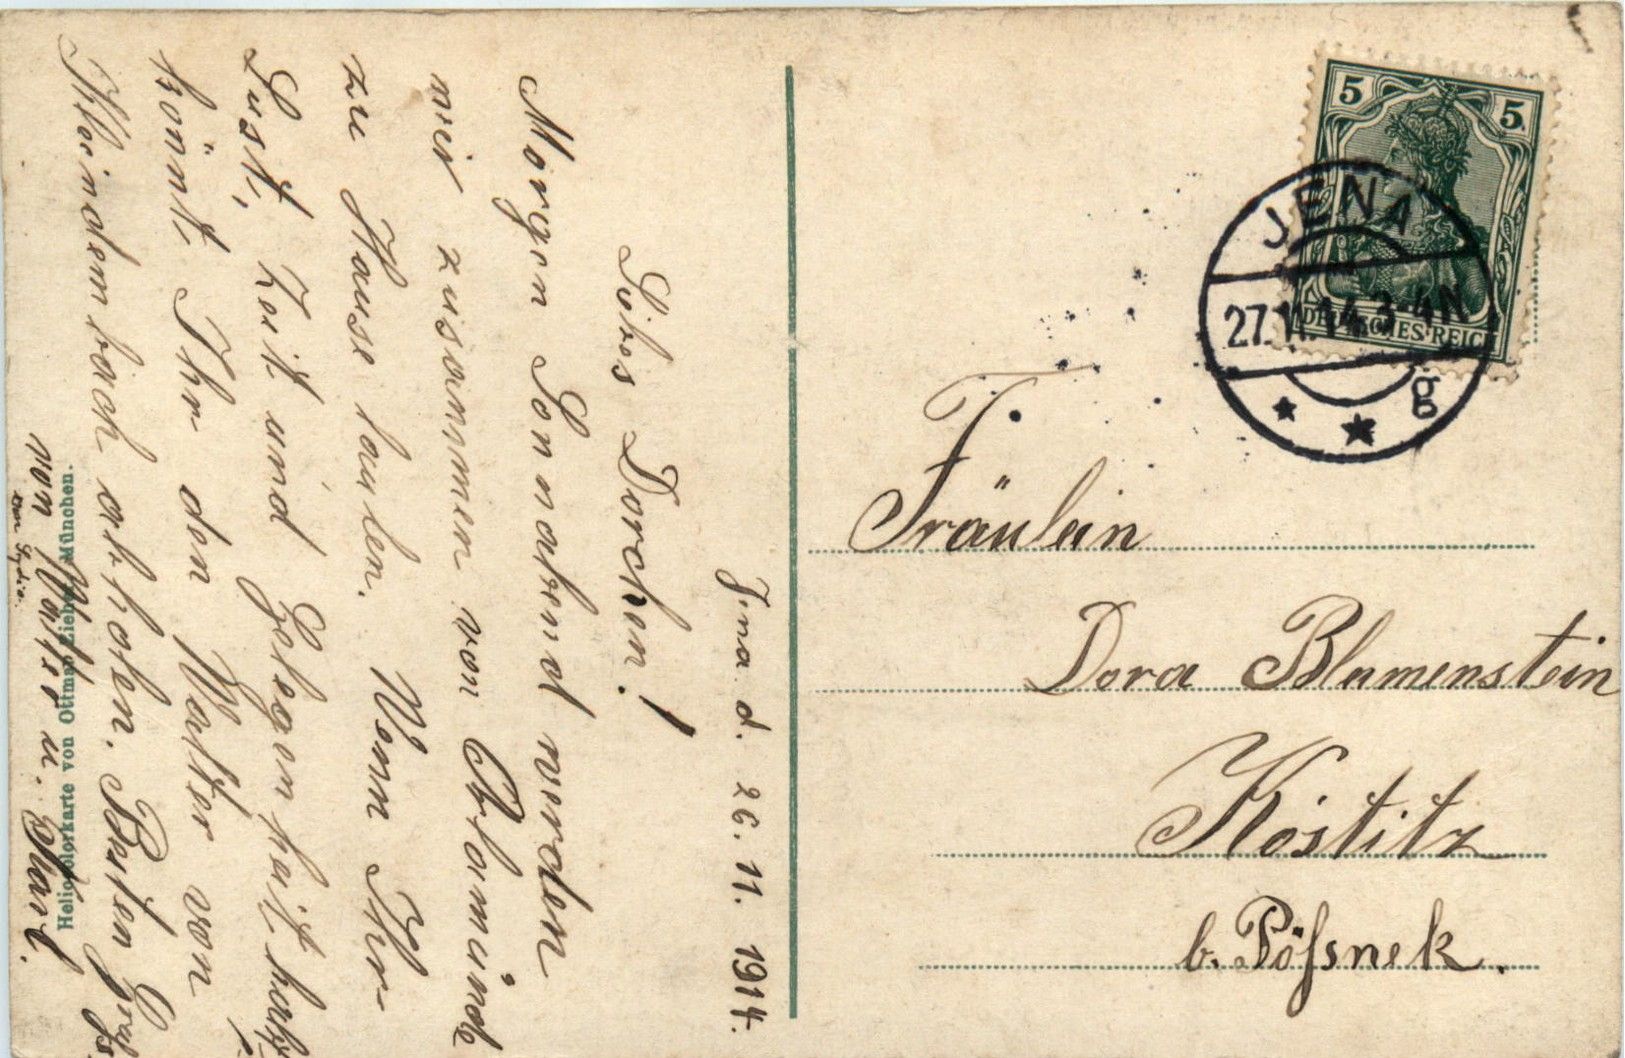 Jena d. 26. 11. 1914.
Libes Dorchen!
Morgen Sonnabend werden
wir zusammen von Orlamünde
zu Hause laufen. Wenn Ihr
Lust, Zeit und Gelegenheit habt,
könnt Ihr den Walter von
abholen. Besten Gruß
von Walter u.
Heliocolorkarte von Ottmar Zieher, München.
5 5
DEUTSCHES REICH
JENA
27.11.14.3-4N
g
Fräulein
Dora Blumenstein
Köstitz
b. Pößneck.